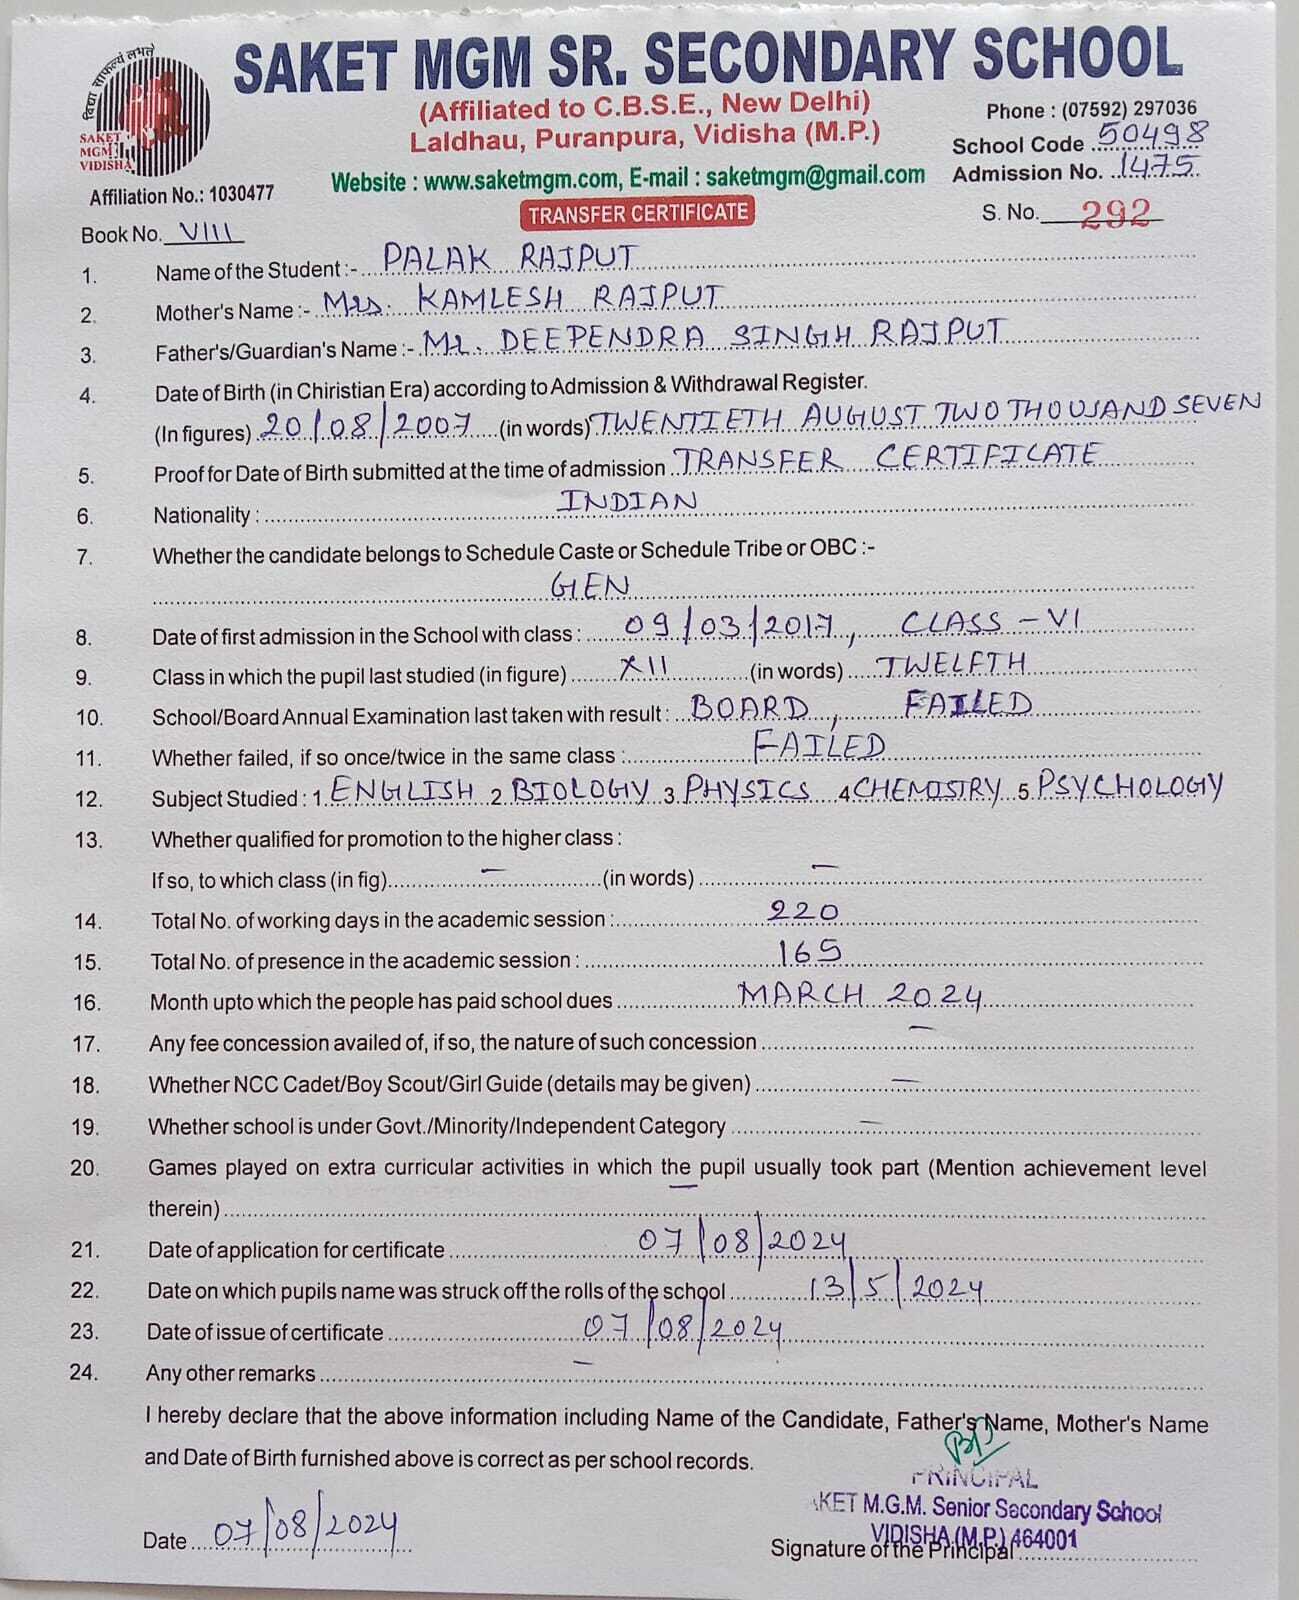 SAKET MGM SR. SECONDARY SCHOOL
विद्या साफल्यं लभते
SAKET
MGM
VIDISHA
(Affiliated to C.B.S.E., New Delhi)
Laldhau, Puranpura, Vidisha (M.P.)
Phone : (07592) 297036
School Code 50498
Admission No. 1475
Website : www.saketmgm.com, E-mail : saketmgm@gmail.com
Affiliation No.: 1030477
TRANSFER CERTIFICATE
Book No. VIII
S. No. 292
1. Name of the Student :- PALAK RAJPUT
2. Mother's Name :- Mrs. KAMLESH RAJPUT
3. Father's/Guardian's Name :- Mr. DEEPENDRA SINGH RAJPUT
4. Date of Birth (in Chiristian Era) according to Admission & Withdrawal Register.
(In figures) 20/08/2007 (in words) TWENTIETH AUGUST TWO THOUSAND SEVEN
5. Proof for Date of Birth submitted at the time of admission TRANSFER CERTIFICATE
6. Nationality : INDIAN
7. Whether the candidate belongs to Schedule Caste or Schedule Tribe or OBC :-
GEN
8. Date of first admission in the School with class : 09/03/2017, CLASS - VI
9. Class in which the pupil last studied (in figure) XII (in words) TWELFTH
10. School/Board Annual Examination last taken with result : BOARD, FAILED
11. Whether failed, if so once/twice in the same class : FAILED
12. Subject Studied : 1. ENGLISH 2. BIOLOGY 3. PHYSICS 4. CHEMISTRY 5. PSYCHOLOGY
13. Whether qualified for promotion to the higher class :
If so, to which class (in fig) — (in words) —
14. Total No. of working days in the academic session : 220
15. Total No. of presence in the academic session : 165
16. Month upto which the people has paid school dues MARCH 2024
17. Any fee concession availed of, if so, the nature of such concession —
18. Whether NCC Cadet/Boy Scout/Girl Guide (details may be given) —
19. Whether school is under Govt./Minority/Independent Category —
20. Games played on extra curricular activities in which the pupil usually took part (Mention achievement level
therein) —
21. Date of application for certificate 07/08/2024
22. Date on which pupils name was struck off the rolls of the school 13/5/2024
23. Date of issue of certificate 07/08/2024
24. Any other remarks —
I hereby declare that the above information including Name of the Candidate, Father's Name, Mother's Name
and Date of Birth furnished above is correct as per school records.
PRINCIPAL
KET M.G.M. Senior Secondary School
VIDISHA (M.P.) 464001
Date 07/08/2024
Signature of the Principal